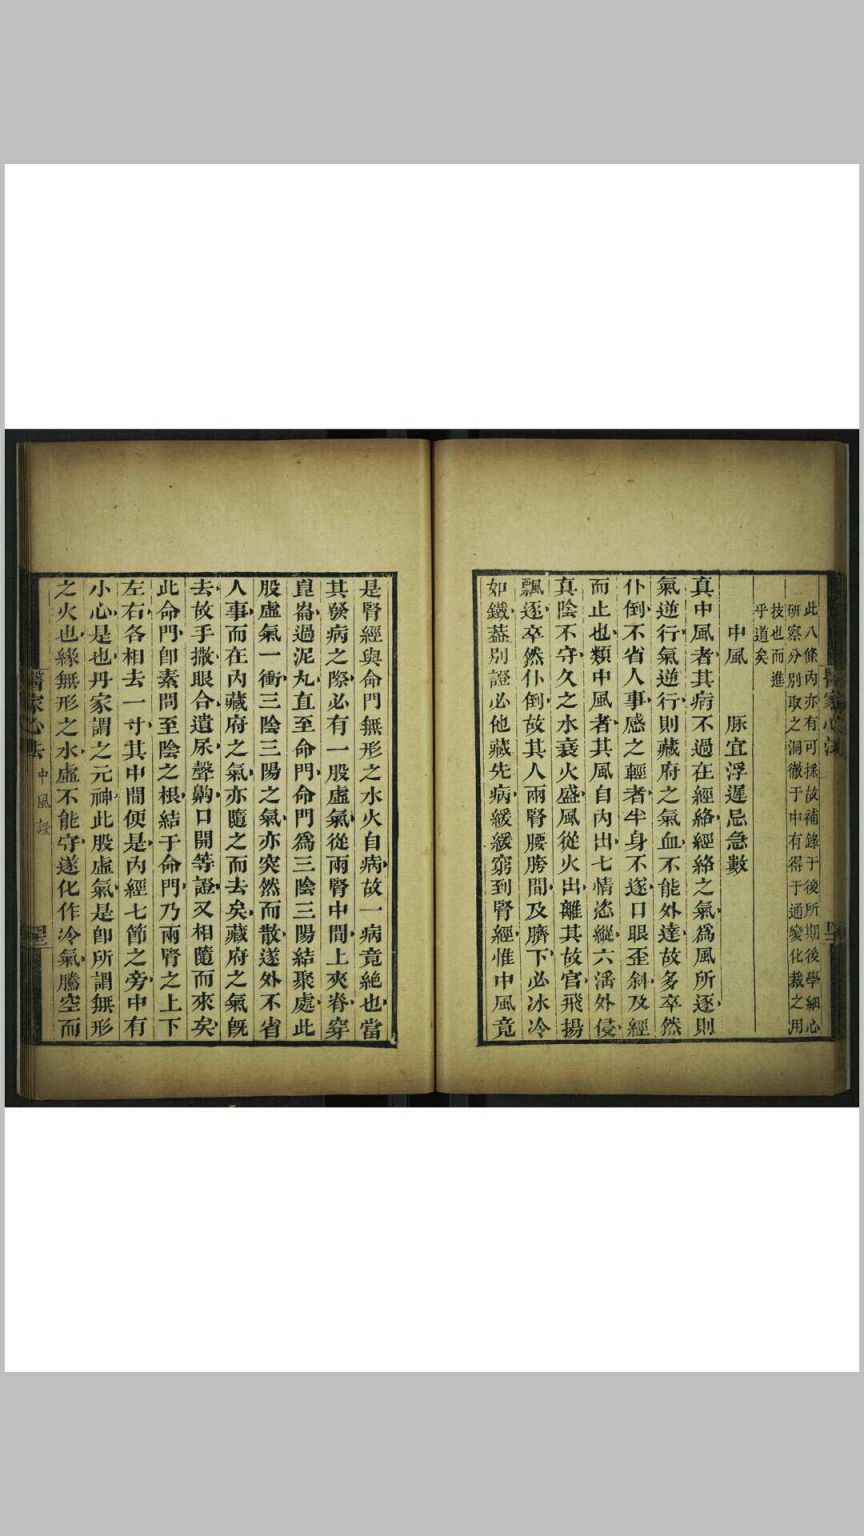 此八條內亦有可採故補錄于後所期後學細心
研察分別取之洞徹于中有得于通變化裁之用
技也而進
乎道矣
中風　脉宜浮遲忌急數
真中風者其病不過在經絡經絡之氣為風所逐則
氣逆行氣逆行則藏府之氣血不能外達故多卒然
仆倒不省人事感之輕者半身不遂口眼歪斜及經
而止也類中風者其風自內出七情恣縱六淫外侵
真陰不守久之水衰火盛風從火出離其故宮飛揚
飄逐卒然仆倒故其人兩腎腰胯間及臍下必冰冷
如鐵蓋別證必他藏先病緩緩窮到腎經惟中風竟
是腎經與命門無形之水火自病故一病竟絕也當
其發病之際必有一股虛氣從兩腎中間上夾脊穿
崑崙過泥丸直至命門命門為三陰三陽結聚處此
股虛氣一衝三陰三陽之氣亦突然而散遂外不省
人事而在內藏府之氣亦隨之而去矣藏府之氣既
去故手撒眼合遺尿聲鼾口開等證又相隨而來矣
此命門卽素問至陰之根結于命門乃兩腎之上下
左右各相去一寸其中間便是內經七節之旁中有
小心是也丹家謂之元神此股虛氣是卽所謂無形
之火也緣無形之水虛不能守遂化作冷氣騰空而
醫家心法 中風證